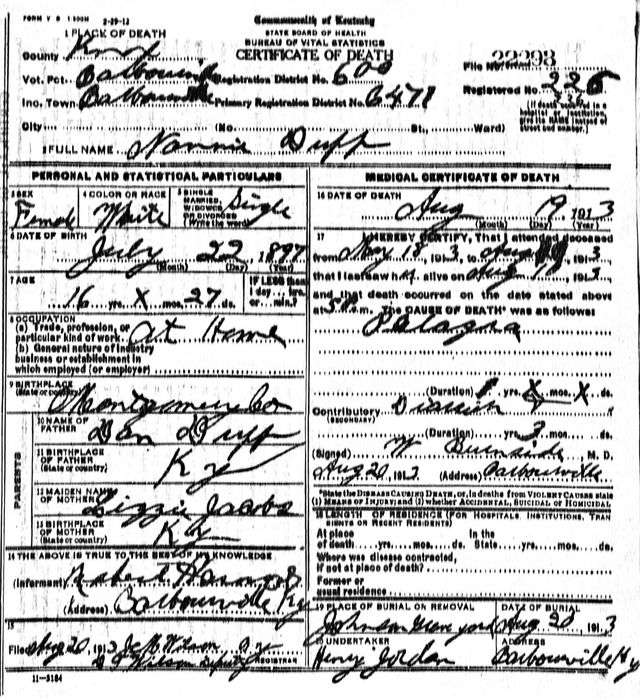 FORM V S 1 500M 2-29-12
Commonwealth of Kentucky
STATE BOARD OF HEALTH
BUREAU OF VITAL STATISTICS
CERTIFICATE OF DEATH
1 PLACE OF DEATH
County Knox
File No. 22293
Vot. Pct. Barbourville Registration District No. 600
Registered No. 226
Inc. Town Barbourville Primary Registration District No. 6471
(If death occurred in a hospital or institution, give its NAME instead of street and number.)
City (No. St., Ward)
2 FULL NAME Nannie Duff
PERSONAL AND STATISTICAL PARTICULARS
3 SEX Female
4 COLOR OR RACE White
5 SINGLE, MARRIED, WIDOWED OR DIVORCED (Write the word) Single
6 DATE OF BIRTH July 22 1897
(Month) (Day) (Year)
7 AGE 16 yrs. X mos. 27 ds.
IF LESS than 1 day... hrs. or... min.?
8 OCCUPATION
(a) Trade, profession, or particular kind of work. At Home
(b) General nature of industry
business or establishment in
which employed (or employer)
9 BIRTHPLACE
(State or country) Montgomery Co
PARENTS
10 NAME OF FATHER Dan Duff
11 BIRTHPLACE OF FATHER (State or country) Ky
12 MAIDEN NAME OF MOTHER Lizzie Jacobs
13 BIRTHPLACE OF MOTHER (State or country) Ky
14 THE ABOVE IS TRUE TO THE BEST OF MY KNOWLEDGE
(Informant) Robert
(Address) Barbourville Ky
15
Filed Aug 20, 1913 Wilson
Wilson Deputy REGISTRAR
11-3184
MEDICAL CERTIFICATE OF DEATH
16 DATE OF DEATH Aug 19 1913
(Month) (Day) (Year)
17 I HEREBY CERTIFY, That I attended deceased
from May 18 1913, to Aug 1913
that I last saw h alive on Aug 18, 1913
and that death occurred on the date stated above
at m. The CAUSE OF DEATH* was as follows
Palagra
(Duration) yrs. X mos. X ds.
Contributory
(SECONDARY)
(Duration) yrs. 3 mos. ds.
(Signed) W Burnside, M. D.
Aug 20, 1913 (Address) Barbourville
*State the DISEASE CAUSING DEATH, or, in deaths from VIOLENT CAUSES state
(1) MEANS OF INJURY; and (2) whether ACCIDENTAL, SUICIDAL or HOMICIDAL
18 LENGTH OF RESIDENCE (FOR HOSPITALS, INSTITUTIONS, TRANSIENTS OR RECENT RESIDENTS)
At place of death... yrs... mos... ds. In the State... yrs... mos... ds.
Where was disease contracted,
if not at place of death?
Former or
usual residence
19 PLACE OF BURIAL OR REMOVAL Johnson Grave yard
DATE OF BURIAL Aug 20 1913
20 UNDERTAKER Henry Jordan
ADDRESS Barbourville Ky